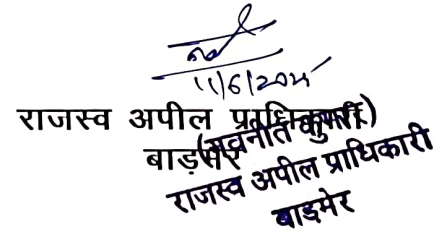 11/6/2025
राजस्व अपील प्राधिकारी
बाड़मेर
(नवनीत कुमार)
राजस्व अपील प्राधिकारी
बाड़मेर